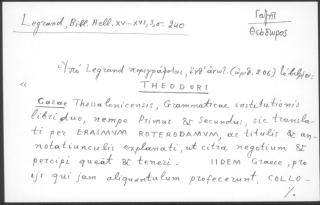 Legrand, Bibl. Hell. XV-XVI, 3, σ. 240
Γαζῆ
Θεόδωρος
Ὑπὸ Legrand περιγράφεται, ἀριθ. 206)
" THEODORI
Gazae Thessalonicensis, Grammaticae institutionis
libri duo, nempe Primus & Secundus, sic transla-
ti per ERASMUM ROTERODAMUM, ac titulis & an-
notatiunculis explanati, ut citra negotium &
percipi queãt & teneri. IIDEM Graece, pro
ijs qui jam aliquantulum profecerunt, COLLO-
%.